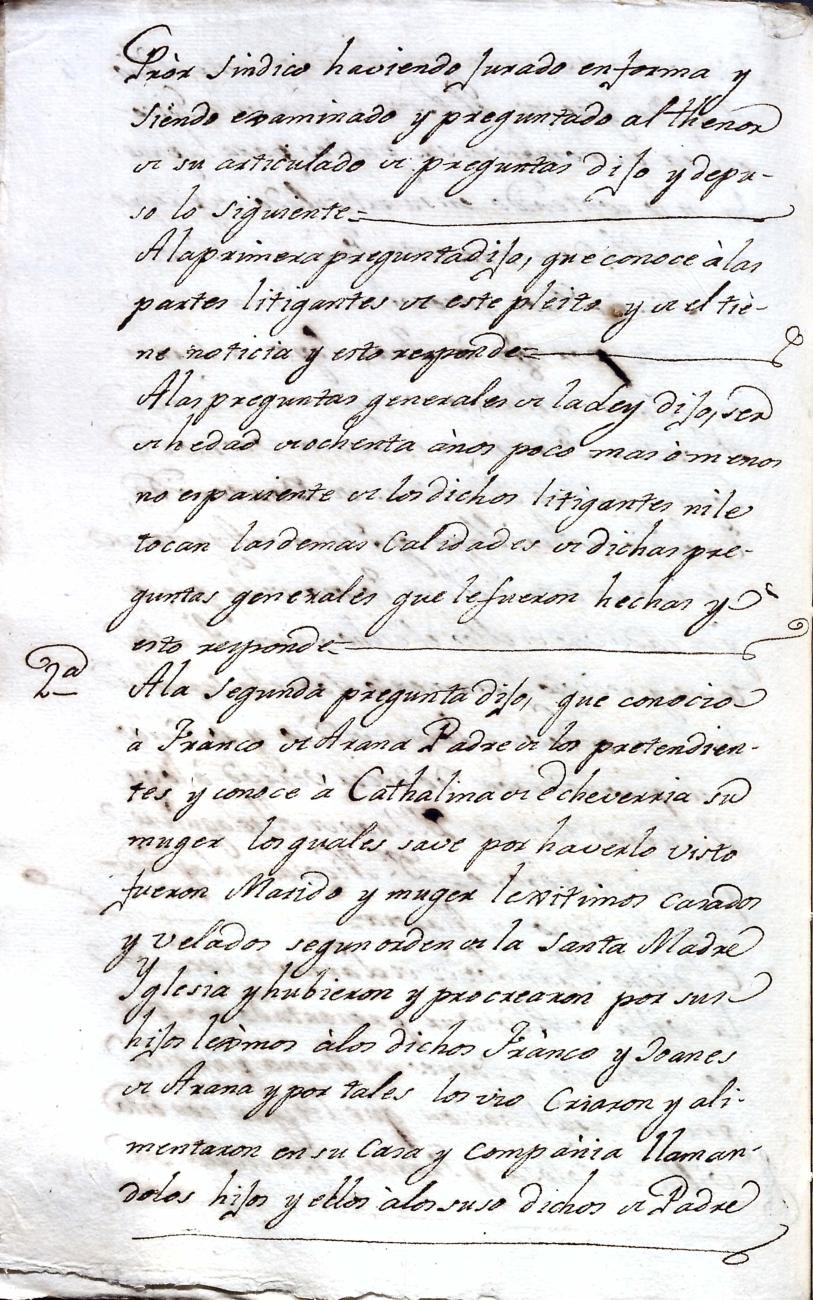 Pròr Sindico haviendo Jurado en forma y
siendo examinado y preguntado al thenor
de su articulado de preguntas dijo y depu-
so lo siguiente=
A la primera pregunta dijo, que conoce à las
partes litigantes de este pleito y de el tie-
ne noticia y esto responde=
A las preguntas generales de la Ley dijo, ser
de hedad de ochenta años poco mas ò menos
no es pariente de los dichos litigantes ni le
tocan las demas Calidades de dichas pre-
guntas generales que le fueron hechas y
esto responde=
2ª
A la segunda pregunta dijo, que conocio
à Franco de Arana Padre de los pretendien-
tes y conoce à Cathalina de Echeverria su
muger los quales save por haverlo visto
fueron Marido y muger lexitimos casados
y velados segun orden de la Santa Madre
Yglesia y hubieron y procrearon por sus
hijos lexmos à los dichos Franco y Joanes
de Arana y por tales los vio Criaron y ali-
mentaron en su Casa y Compania llaman-
dolos hijos y ellos à los suso dichos de Padre